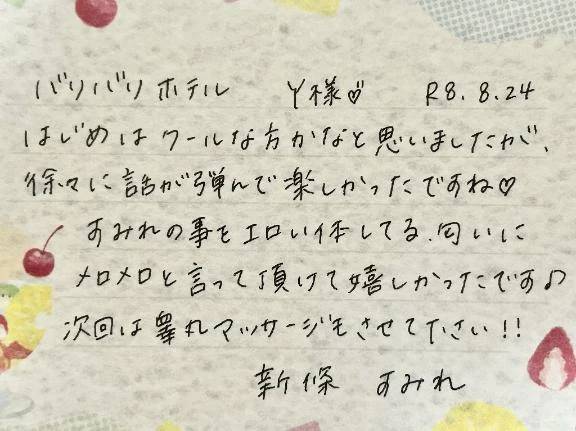 バリバリホテル Y様♡ R8.8.24
はじめはクールな方かなと思いましたが、
徐々に話が弾んで楽しかったですね♡
すみれの事もエロい体してる、匂いに
メロメロと言って頂けて嬉しかったです♪
次回は睾丸マッサージもさせて下さい!!
新條 すみれ